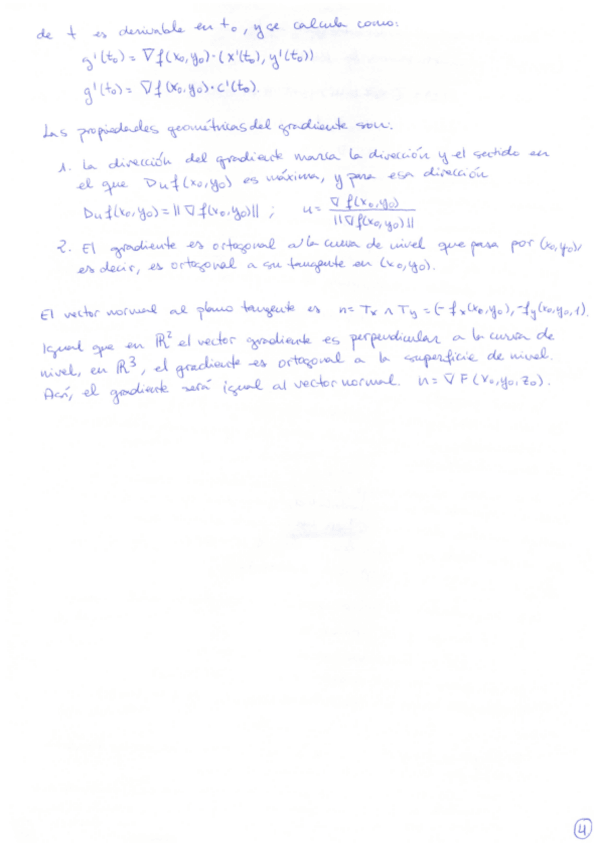 de t es derivable en t₀, y se calcula como:
g'(t₀) = ∇f(x₀,y₀)·(x'(t₀), y'(t₀))
g'(t₀) = ∇f(x₀,y₀)·c'(t₀).
Las propiedades geométricas del gradiente son:
1. La dirección del gradiente marca la dirección y el sentido en
el que Duf(x₀,y₀) es máxima, y para esa dirección
Duf(x₀,y₀) = ||∇f(x₀,y₀)|| ; u = ∇f(x₀,y₀) / ||∇f(x₀,y₀)||
2. El gradiente es ortogonal a la curva de nivel que pasa por (x₀,y₀),
es decir, es ortogonal a su tangente en (x₀,y₀).
El vector normal al plano tangente es n = Tx ∧ Ty = (-fx(x₀,y₀), -fy(x₀,y₀,1).
Igual que en ℝ² el vector gradiente es perpendicular a la curva de
nivel, en ℝ³, el gradiente es ortogonal a la superficie de nivel.
Así, el gradiente será igual al vector normal. n = ∇F(x₀,y₀,z₀).
4